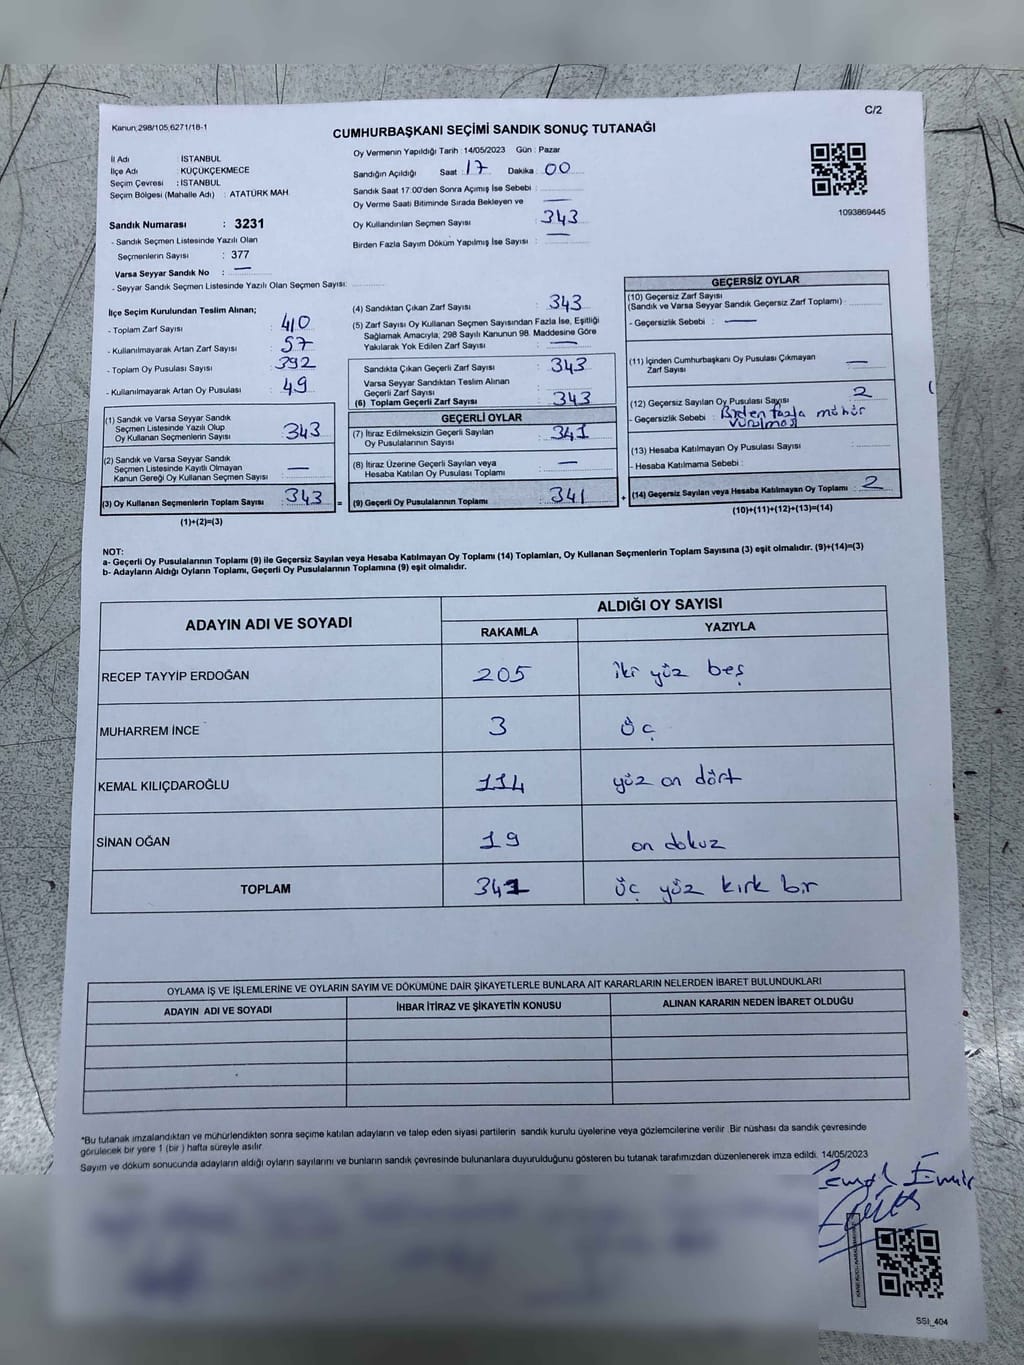 C/2
Kanun;298/105;6271/18-1
CUMHURBAŞKANI SEÇİMİ SANDIK SONUÇ TUTANAĞI
İl Adı : İSTANBUL
İlçe Adı : KÜÇÜKÇEKMECE
Seçim Çevresi : İSTANBUL
Seçim Bölgesi (Mahalle Adı) : ATATÜRK MAH.
Sandık Numarası : 3231
- Sandık Seçmen Listesinde Yazılı Olan
Seçmenlerin Sayısı : 377
Varsa Seyyar Sandık No : —
- Seyyar Sandık Seçmen Listesinde Yazılı Olan Seçmen Sayısı:
Oy Vermenin Yapıldığı Tarih : 14/05/2023 Gün : Pazar
Sandığın Açıldığı Saat : 17 Dakika : 00
Sandık Saat 17:00'den Sonra Açılmış İse Sebebi :
Oy Verme Saati Bitiminde Sırada Bekleyen ve —
Oy Kullandırılan Seçmen Sayısı : 343
Birden Fazla Sayım Döküm Yapılmış İse Sayısı : —
1093869445
İlçe Seçim Kurulundan Teslim Alınan;
- Toplam Zarf Sayısı : 410
- Kullanılmayarak Artan Zarf Sayısı : 57
- Toplam Oy Pusulası Sayısı : 392
- Kullanılmayarak Artan Oy Pusulası : 49
(1) Sandık ve Varsa Seyyar Sandık
Seçmen Listesinde Yazılı Olup
Oy Kullanan Seçmenlerin Sayısı : 343
(2) Sandık ve Varsa Seyyar Sandık
Seçmen Listesinde Kayıtlı Olmayan
Kanun Gereği Oy Kullanan Seçmen Sayısı : —
(3) Oy Kullanan Seçmenlerin Toplam Sayısı : 343 =
(1)+(2)=(3)
(4) Sandıktan Çıkan Zarf Sayısı : 343
(5) Zarf Sayısı Oy Kullanan Seçmen Sayısından Fazla İse, Eşitliği
Sağlamak Amacıyla, 298 Sayılı Kanunun 98. Maddesine Göre
Yakılarak Yok Edilen Zarf Sayısı : —
Sandıkta Çıkan Geçerli Zarf Sayısı : 343
Varsa Seyyar Sandıktan Teslim Alınan
Geçerli Zarf Sayısı :
(6) Toplam Geçerli Zarf Sayısı : 343
GEÇERLİ OYLAR
(7) İtiraz Edilmeksizin Geçerli Sayılan
Oy Pusulalarının Sayısı : 341
(8) İtiraz Üzerine Geçerli Sayılan veya
Hesaba Katılan Oy Pusulası Toplamı : —
(9) Geçerli Oy Pusulalarının Toplamı : 341 +
GEÇERSİZ OYLAR
(10) Geçersiz Zarf Sayısı
(Sandık ve Varsa Seyyar Sandık Geçersiz Zarf Toplamı) :
- Geçersizlik Sebebi : —
(11) İçinden Cumhurbaşkanı Oy Pusulası Çıkmayan
Zarf Sayısı : —
(12) Geçersiz Sayılan Oy Pusulası Sayısı : 2
- Geçersizlik Sebebi : Birden fazla mühür
vurulması
(13) Hesaba Katılmayan Oy Pusulası Sayısı :
- Hesaba Katılmama Sebebi :
(14) Geçersiz Sayılan veya Hesaba Katılmayan Oy Toplamı : 2
(10)+(11)+(12)+(13)=(14)
NOT:
a- Geçerli Oy Pusulalarının Toplamı (9) ile Geçersiz Sayılan veya Hesaba Katılmayan Oy Toplamı (14) Toplamları, Oy Kullanan Seçmenlerin Toplam Sayısına (3) eşit olmalıdır. (9)+(14)=(3)
b- Adayların Aldığı Oyların Toplamı, Geçerli Oy Pusulalarının Toplamına (9) eşit olmalıdır.
ADAYIN ADI VE SOYADI ALDIĞI OY SAYISI
RAKAMLA YAZIYLA
RECEP TAYYİP ERDOĞAN 205 iki yüz beş
MUHARREM İNCE 3 üç
KEMAL KILIÇDAROĞLU 114 yüz on dört
SİNAN OĞAN 19 on dokuz
TOPLAM 341 üç yüz kırk bir
OYLAMA İŞ VE İŞLEMLERİNE VE OYLARIN SAYIM VE DÖKÜMÜNE DAİR ŞİKAYETLERLE BUNLARA AİT KARARLARIN NELERDEN İBARET BULUNDUKLARI
ADAYIN ADI VE SOYADI İHBAR İTİRAZ VE ŞİKAYETİN KONUSU ALINAN KARARIN NEDEN İBARET OLDUĞU
*Bu tutanak imzalandıktan ve mühürlendikten sonra seçime katılan adayların ve talep eden siyasi partilerin sandık kurulu üyelerine veya gözlemcilerine verilir. Bir nüshası da sandık çevresinde
görülecek bir yere 1 (bir ) hafta süreyle asılır
Sayım ve döküm sonucunda adayların aldığı oyların sayılarını ve bunların sandık çevresinde bulunanlara duyurulduğunu gösteren bu tutanak tarafımızdan düzenlenerek imza edildi. 14/05/2023
Emir
SSI_404